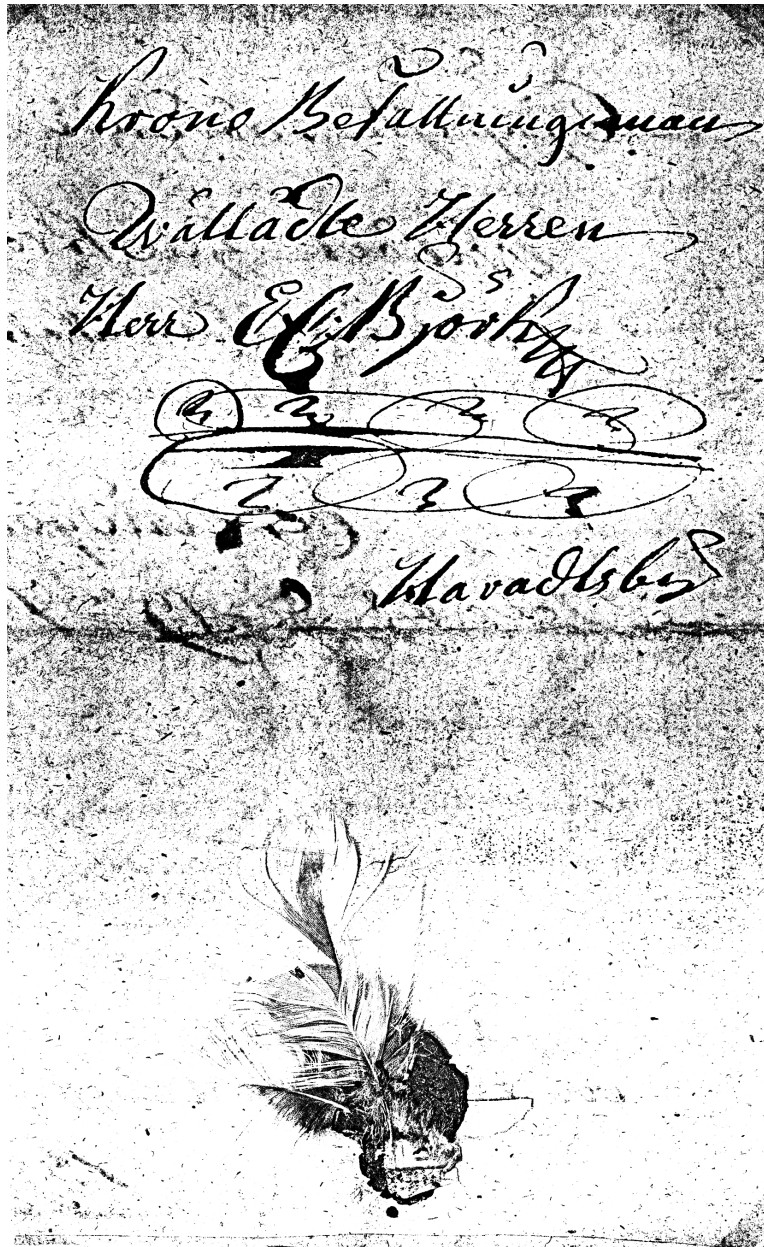 Krono Befallningsman
Wälädle Herren
Herr E G Björk
Haradtsby